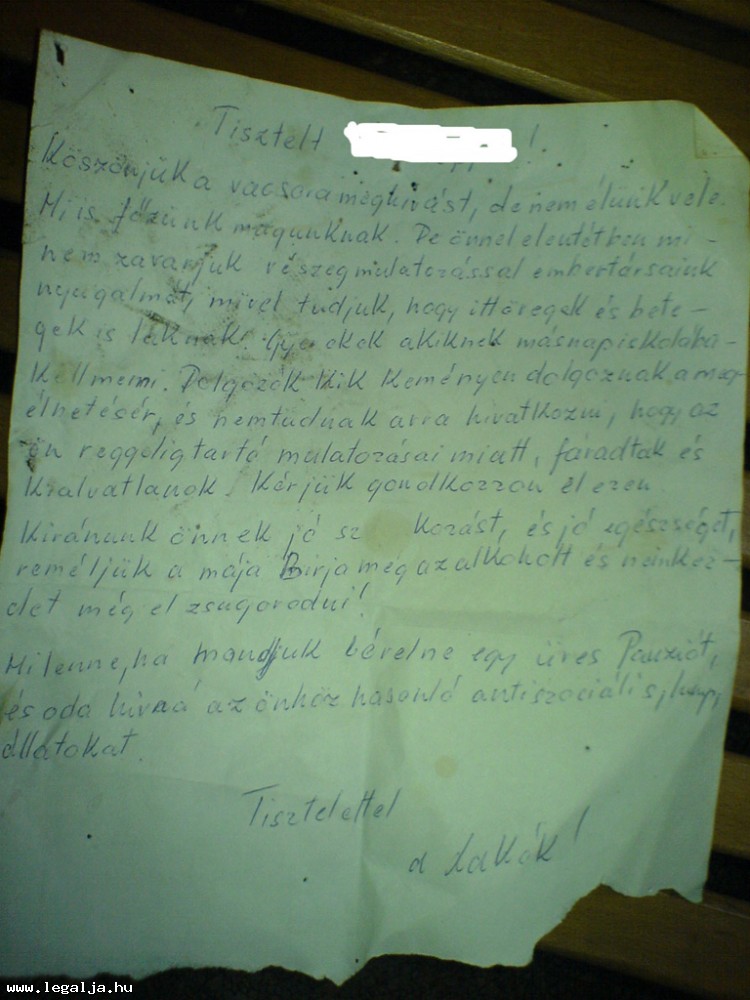 Tisztelt !
Köszönjük a vacsorameghívást, de nem élünk vele.
Mi is főzünk magunknak. De önnel elentétben mi-
nem zavarjuk részegmulatozással embertársaink
nyugalmát, mivel tudjuk, hogy itt öregek és bete-
gek is laknak! Gye ekek akiknek másnap iskolába-
kell menni. Dolgozók kik keményen dolgoznak a meg-
élhetésér, és nemtudnak arra hivatkozni, hogy az
ön reggeligtartó mulatozásai miatt, fáradtak és
kialvatlanok. Kérjük gondolkozzon él ezen.
Kivánunk önnek jó sz kozást, és jó egészséget,
reméljük a mája Birja még az alkoholt és nem kez-
det még el zsugorodni!
Mi lenne, ha mondjuk bérelne egy üres Panziót,
és oda hívná az önhöz hasonló antiszociális,
állatokat.
Tisztelettel
a lakók!
www.legalja.hu